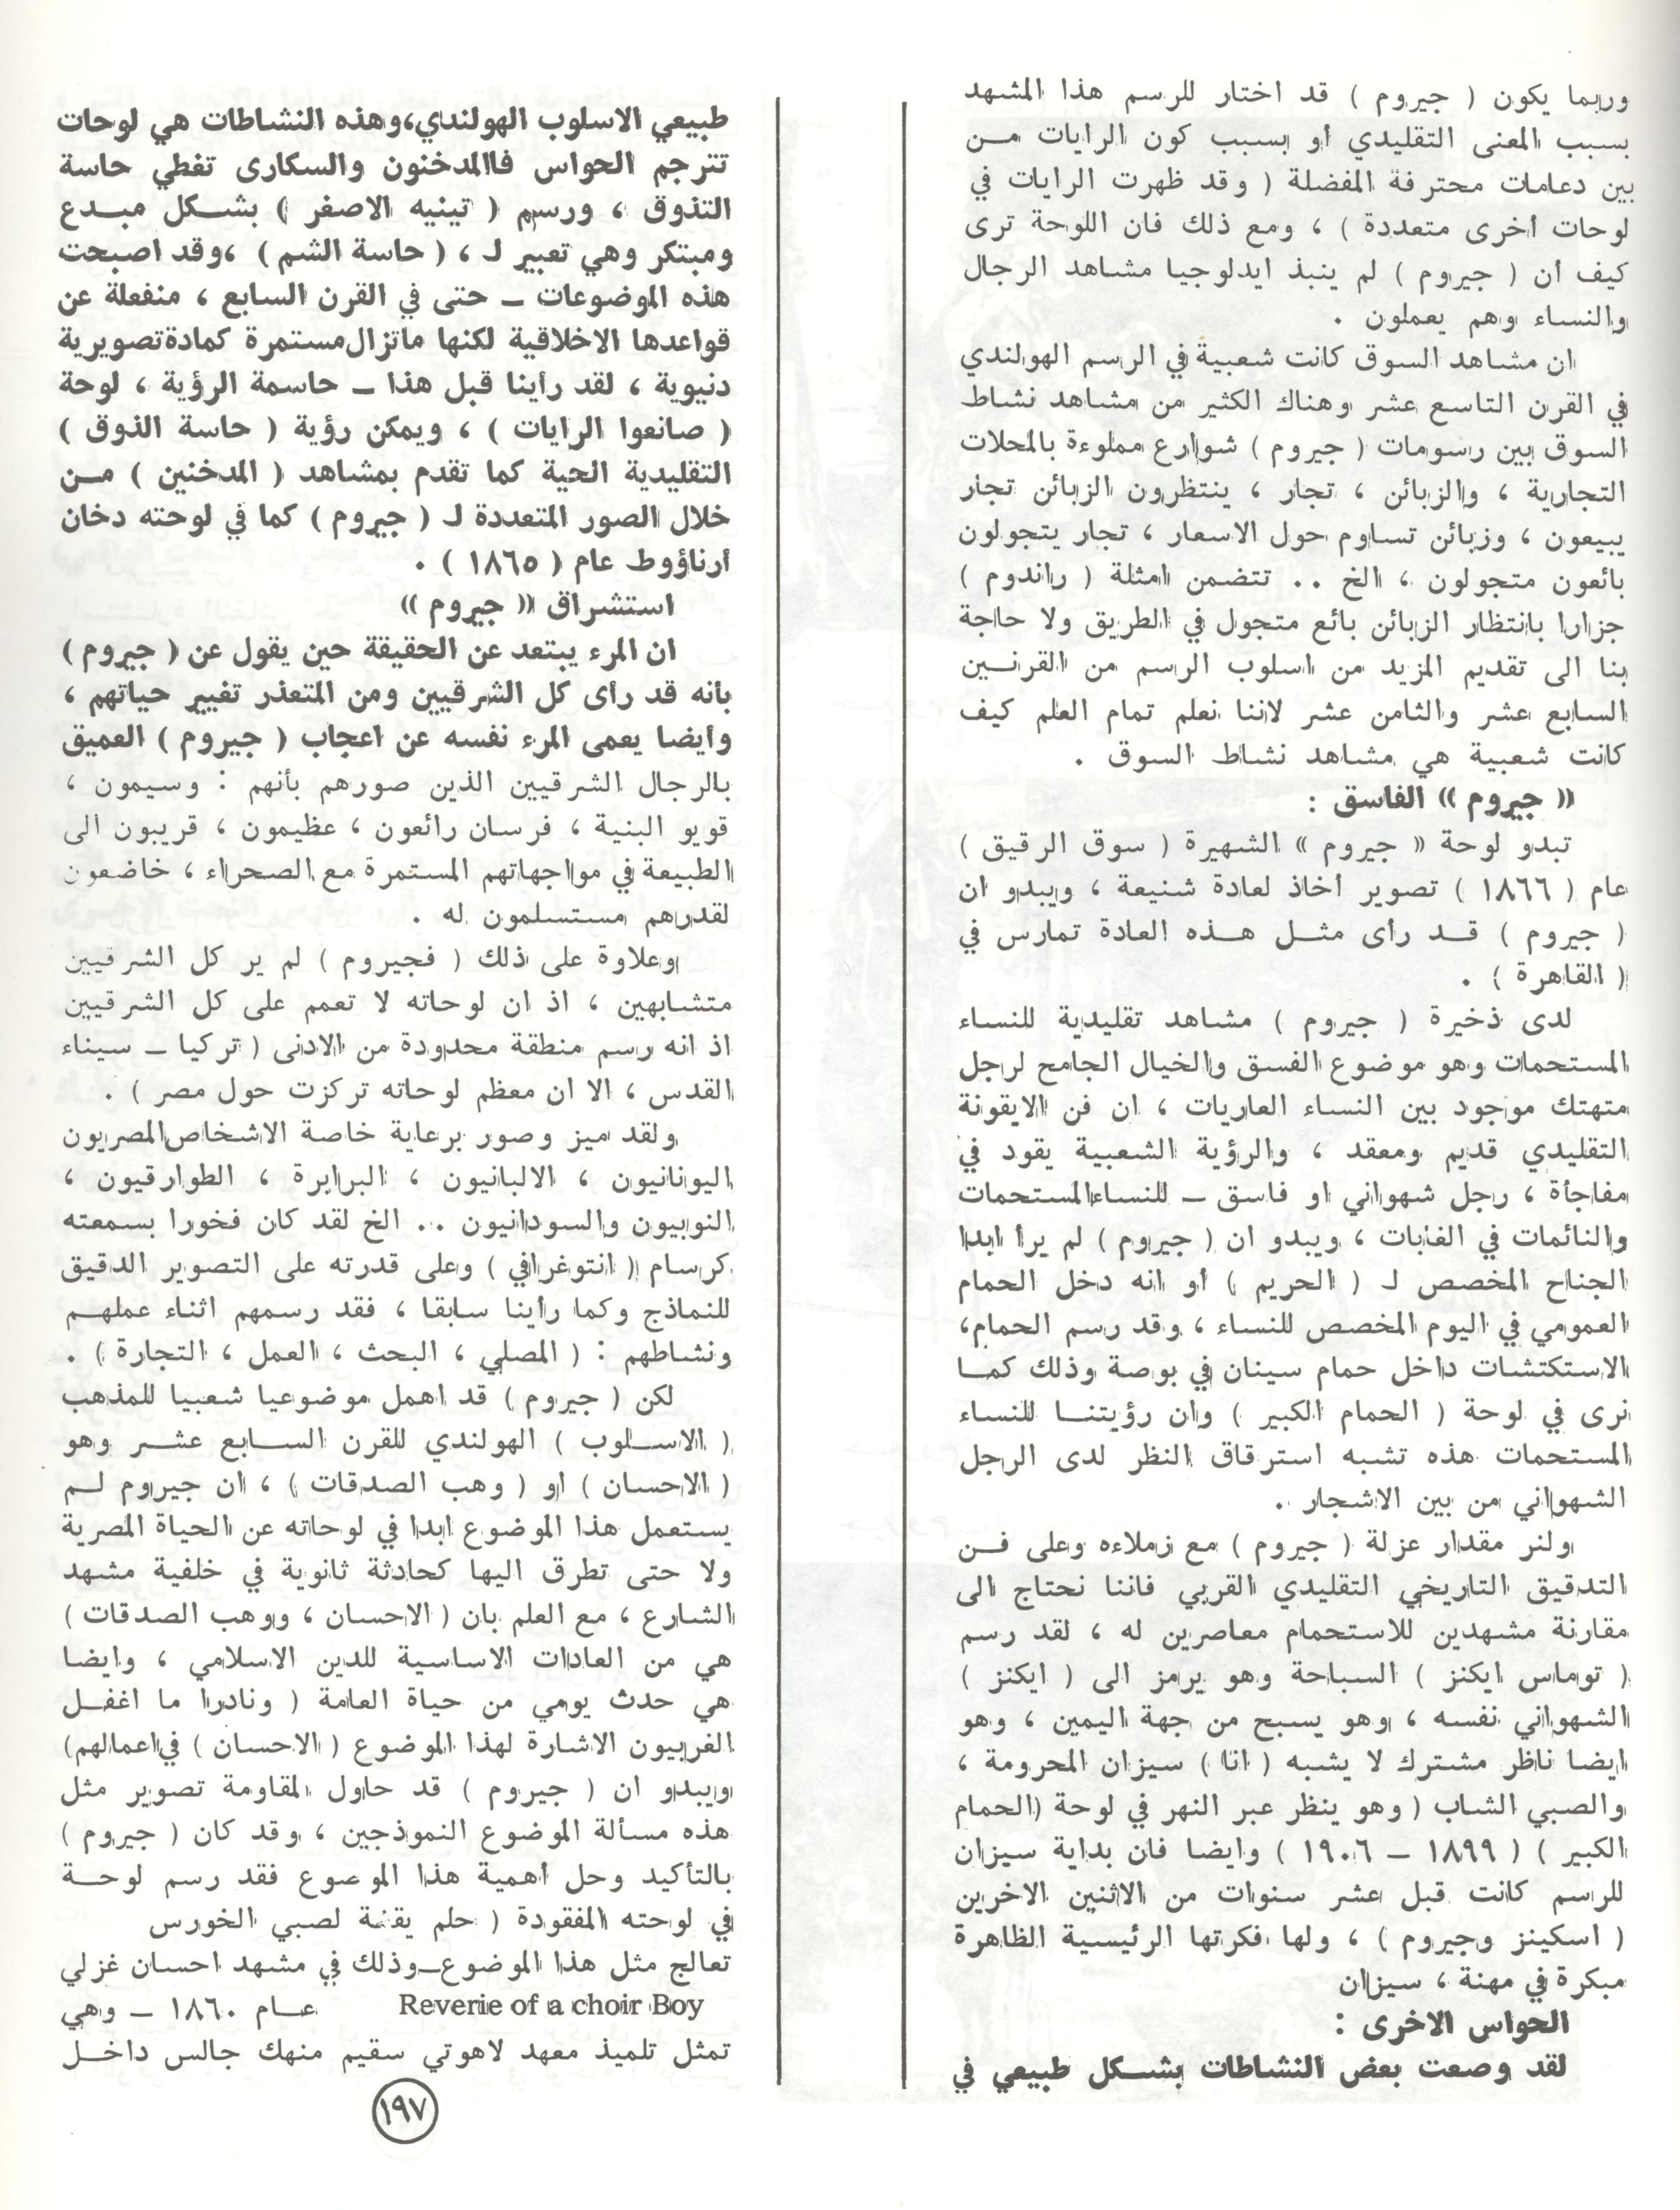 وربما يكون ( جيروم ) قد اختار للرسم هذا المشهد
بسبب المعنى التقليدي أو بسبب كون الرايات مـن
بين دعامات محترفة المفضلة ( وقد ظهرت الرايات في
لوحات أخرى متعددة ) ، ومع ذلك فان اللوحة ترى
كيف أن ( جيروم ) لم ينبذ ايدلوجيا مشاهد الرجال
والنساء وهم يعملون .
ان مشاهد السوق كانت شعبية في الرسم الهولندي
في القرن التاسع عشر وهناك الكثير من مشاهد نشاط
السوق بين رسومات ( جيروم ) شوارع مملوءة بالمحلات
التجارية ، والزبائن ، تجار ، ينتظرون الزبائن تجار
يبيعون ، وزبائن تساوم حول الاسعار ، تجار يتجولون
بائعون متجولون ، الخ .. تتضمن امثلة ( راندوم )
جزارا بانتظار الزبائن بائع متجول في الطريق ولا حاجة
بنا الى تقديم المزيد من اسلوب الرسم من القرنـين
السابع عشر والثامن عشر لاننا نعلم تمام العلم كيف
كانت شعبية هي مشاهد نشاط السوق .
« جيروم » الفاسق :
تبدو لوحة « جيروم » الشهيرة ( سوق الرقيق )
عام ( ١٨٦٦ ) تصوير أخاذ لعادة شنيعة ، ويبدو ان
( جيروم ) قـد رأى مثـل هـذه العادة تمارس في
( القاهرة ) .
لدى ذخيرة ( جيروم ) مشاهد تقليدية للنساء
المستحمات وهو موضوع الفسق والخيال الجامح لرجل
متهتك موجود بين النساء العاريات ، ان فن الايقونة
التقليدي قديم ومعقد ، والرؤية الشعبية يقود في
مفاجأة ، رجل شهواني او فاسق ـ للنساءالمستحمات
والنائمات في الغابات ، ويبدو ان ( جيروم ) لم يرأ ابدا
الجناح المخصص لـ ( الحريم ) أو انه دخل الحمام
العمومي في اليوم المخصص للنساء ، وقد رسم الحمام،
الاستكتشات داخل حمام سينان في بوصة وذلك كمـا
نرى في لوحة ( الحمام الكبير ) وان رؤيتنـا للنساء
المستحمات هذه تشبه استرقاق النظر لدى الرجل
الشهواني من بين الاشجار .
ولنر مقدار عزلة ( جيروم ) مع زملاءه وعلى فـن
التدقيق التاريخي التقليدي القربي فاننا نحتاج الى
مقارنة مشهدين للاستحمام معاصرين له ، لقد رسم
( توماس ايكنز ) السباحة وهو يرمز الى ( ايكنز )
الشهواني نفسه ، وهو يسبح من جهة اليمين ، وهو
ايضا ناظر مشترك لا يشبه ( انا ) سيزان المحرومة ،
والصبي الشاب ( وهو ينظر عبر النهر في لوحة (الحمام
الكبير ) ( ١٨٩٩ ـ ١٩٠٦ ) وايضا فان بداية سيزان
للرسم كانت قبل عشر سنوات من الاثنين الاخرين
( اسكينز وجيروم ) ، ولها فكرتها الرئيسية الظاهرة
مبكرة في مهنة ، سيزان
الحواس الاخرى :
لقد وصعت بعض النشاطات بشـكل طبيعي في
طبيعي الاسلوب الهولندي،وهذه النشاطات هي لوحات
تترجم الحواس فاالمدخنون والسكارى تغطي حاسة
التذوق ، ورسم ( تينيه الاصغر ) بشـكل مبـدع
ومبتكر وهي تعبير لـ ، ( حاسة الشم ) ،وقد اصبحت
هذه الموضوعات ـ حتى في القرن السابع ، منفعلة عن
قواعدها الاخلاقية لكنها ماتزال مستمرة كمادةتصويرية
دنيوية ، لقد رأينا قبل هذا ـ حاسمة الرؤية ، لوحة
( صانعوا الرايات ) ، ويمكن رؤية ( حاسة الذوق )
التقليدية الحية كما تقدم بمشاهد ( المدخنين ) مـن
خلال الصور المتعددة لـ ( جيروم ) كما في لوحته دخان
أرناؤوط عام ( ١٨٦٥ ) .
استشراق « جيروم »
ان المرء يبتعد عن الحقيقة حين يقول عن ( جيروم )
بأنه قد رأى كل الشرقيين ومن المتعذر تغيير حياتهم ،
وأيضا يعمى المرء نفسه عن اعجاب ( جيروم ) العميق
بالرجال الشرقيين الذين صورهم بأنهم : وسيمون ،
قويو البنية ، فرسان رائعون ، عظيمون ، قريبون الى
الطبيعة في مواجهاتهم المستمرة مع الصحراء ، خاضعون
لقدرهم مستسلمون له .
وعلاوة على ذلك ( فجيروم ) لم ير كل الشرقيين
متشابهين ، اذ ان لوحاته لا تعمم على كل الشرقيين
اذ انه رسم منطقة محدودة من الادنى ( تركيا ـ سيناء
القدس ، الا ان معظم لوحاته تركزت حول مصر ) .
ولقد ميز وصور برعاية خاصة الاشخاص المصريون
اليونانيون ، الالبانيون ، البرابرة ، الطوارقيون ،
النوبيون والسودانيون .. الخ لقد كان فخورا بسمعته
كرسام ( انتوغرافي ) وعلى قدرته على التصوير الدقيق
للنماذج وكما رأينا سابقا ، فقد رسمهم اثناء عملهـم
ونشاطهم : ( المصلي ، البحث ، العمل ، التجارة ) .
لكن ( جيروم ) قد اهمل موضوعيا شعبيا للمذهب
( الاسـلوب ) الهولندي للقرن السـابع عشـر وهو
( الاحسان ) او ( وهب الصدقات ) ، ان جيروم لـم
يستعمل هذا الموضوع ابدا في لوحاته عن الحياة المصرية
ولا حتى تطرق اليها كحادثة ثانوية في خلفية مشهد
الشارع ، مع العلم بان ( الاحسان ، ووهب الصدقات )
هي من العادات الاساسية للدين الاسلامي ، وايضا
هي حدث يومي من حياة العامة ( ونادرا ما اغفـل
الغربيون الاشارة لهذا الموضوع ( الاحسان ) في اعمالهم)
ويبدو ان ( جيروم ) قد حاول المقاومة تصوير مثل
هذه مسألة الموضوع النموذجين ، وقد كان ( جيروم )
بالتأكيد وحل أهمية هذا الموصوع فقد رسم لوحـة
في لوحته المفقودة ( حلم يقظة لصبي الخورس
تعالج مثل هذا الموضوع ـ وذلك في مشهد احسان غزلي
Reverie of a choir Boy عـام ١٨٦٠ ـ وهي
تمثل تلميذ معهد لاهوتي سقيم منهك جالس داخـل
١٩٧